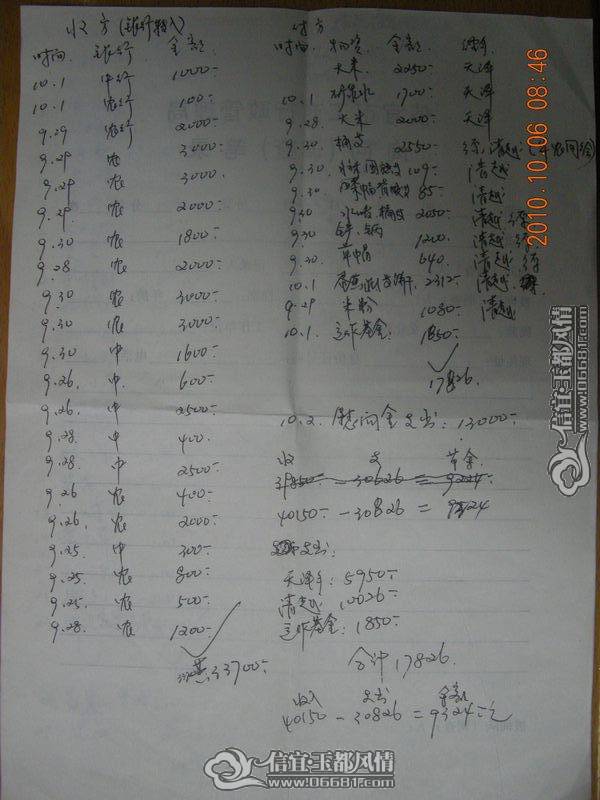 收方 (银行转入)
时间 银行 金额
10.1 中行 1000-
10.1 农行 100-
9.29 农行 2000-
9.29 农 3000-
9.29 农 3000-
9.29 农 2000-
9.30 农 1800-
9.28 农 2000-
9.30 农 3000-
9.30 农 3000-
9.30 中 1600-
9.26 中 600-
9.26 中 2500-
9.28 中 400-
9.28 中 2500-
9.26 农 400-
9.26 农 2000-
9.25 中 300-
9.25 农 800-
9.25 农 500-
9.28 农 1200-
33700-
付方
时间 物资 金额 经手
大米 2250- 天泽
10.1 矿泉水 1700- 天泽
9.28 大米 2000- 天泽
9.30 棉被 2550- 清越
9.30 109- 清越
9.30 85- 清越
9.30 2050- 清越
9.30 1200- 清越
9.30 草席 640- 清越
10.1 2312- 清越
9.29 米粉 1080- 清越
10.1 运作基金 1850-
17826.
10.2. 慰问金支出: 13000-
收 支 节余
40150- -30826 = 9324
支出:
天泽: 5950-
清越: 10026-
运作基金: 1850-
合计 17826.
收入 支出 余额
40150 - 30826 = 9324-元
2010.10.06 08:46
信宜·玉都风情
www.06681.com
信宜·玉都风情
www.06681.com